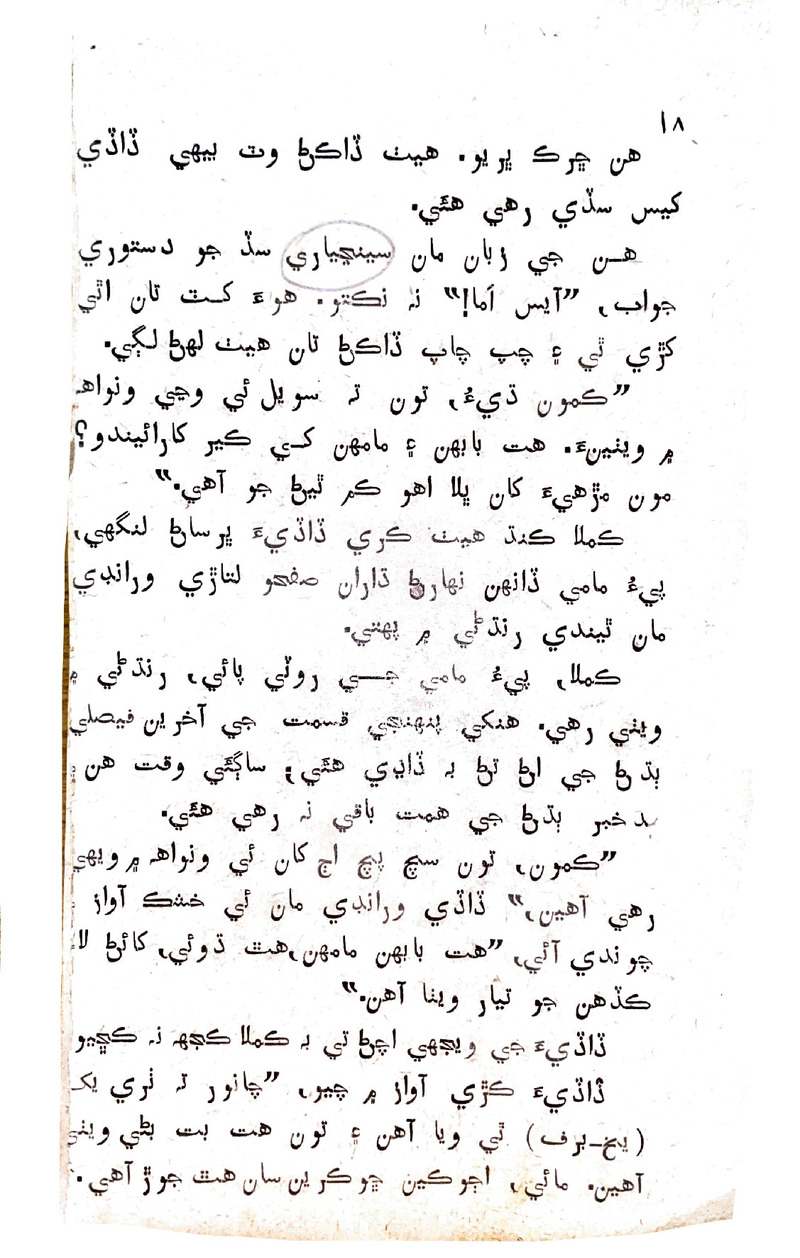 ١٨
هن ڇرڪ ڀريو. هيٺ ڏاڪڻ وٽ بيهي ڏاڏي
کيس سڏي رهي هئي.
هـن جي زبان مان سينڃياري سڏ جو دستوري
جواب، ”آيس اَما!“ نہ نڪتو. هوءَ کـٽ تان اٿي
کڙي ٿي ۽ چپ چاپ ڏاڪڻ تان هيٺ لهڻ لڳي.
”ڪمون ڌيءُ، تون تہ سويل ئي وڃي ونواهہ
۾ ويٺينءَ. هت بابهن ۽ مامهن کـي ڪير کارائيندو؟
مون مڙهيءَ کان ڀلا اهو ڪم ٿيڻ جو آهي.“
ڪملا ڪنڌ هيٺ ڪري ڏاڏيءَ ڀرسان لنگهي،
پيءُ مامي ڏانهن نهارڻ ڌاران صفحو لتاڙي ورانڊي
مان ٿيندي رنڌڻي ۾ پهتي.
ڪملا، پيءُ مامي جـــي روٽي پائي، رنڌڻي ۾
ويٺي رهي. هنکي پنهنجي قسمت جي آخرين فيصلي
ٻڌڻ جي اڻ تڻ بہ ڏاڍي هئي؛ ساڳئي وقت هن ۾
بد خبر ٻڌڻ جي همت باقي نہ رهي هئي.
”ڪمون، تون سچ پچ اڄ کان ئي ونواهہ ۾ ويهي
رهي آهين،“ ڏاڏي ورانڊي مان ئي خشڪ آواز
چوندي آئي، ”هت بابهن مامهن، هٿ ڌوئي، کائڻ لاءِ
ڪڏهن جو تيار ويٺا آهن.“
ڏاڏيءَ جي ويجهي اچڻ تي بہ ڪملا ڪجهہ نہ ڪڇيو
ڏاڏيءَ ڪڙي آواز ۾ چيو، ”چانور تہ ٺري يک
(يخ-برف) ٿي ويا آهن ۽ تون هت بت بڻي ويٺي
آهين. مائي، اڄوڪين ڇوڪرين سان هٿ جوڙ آهي.